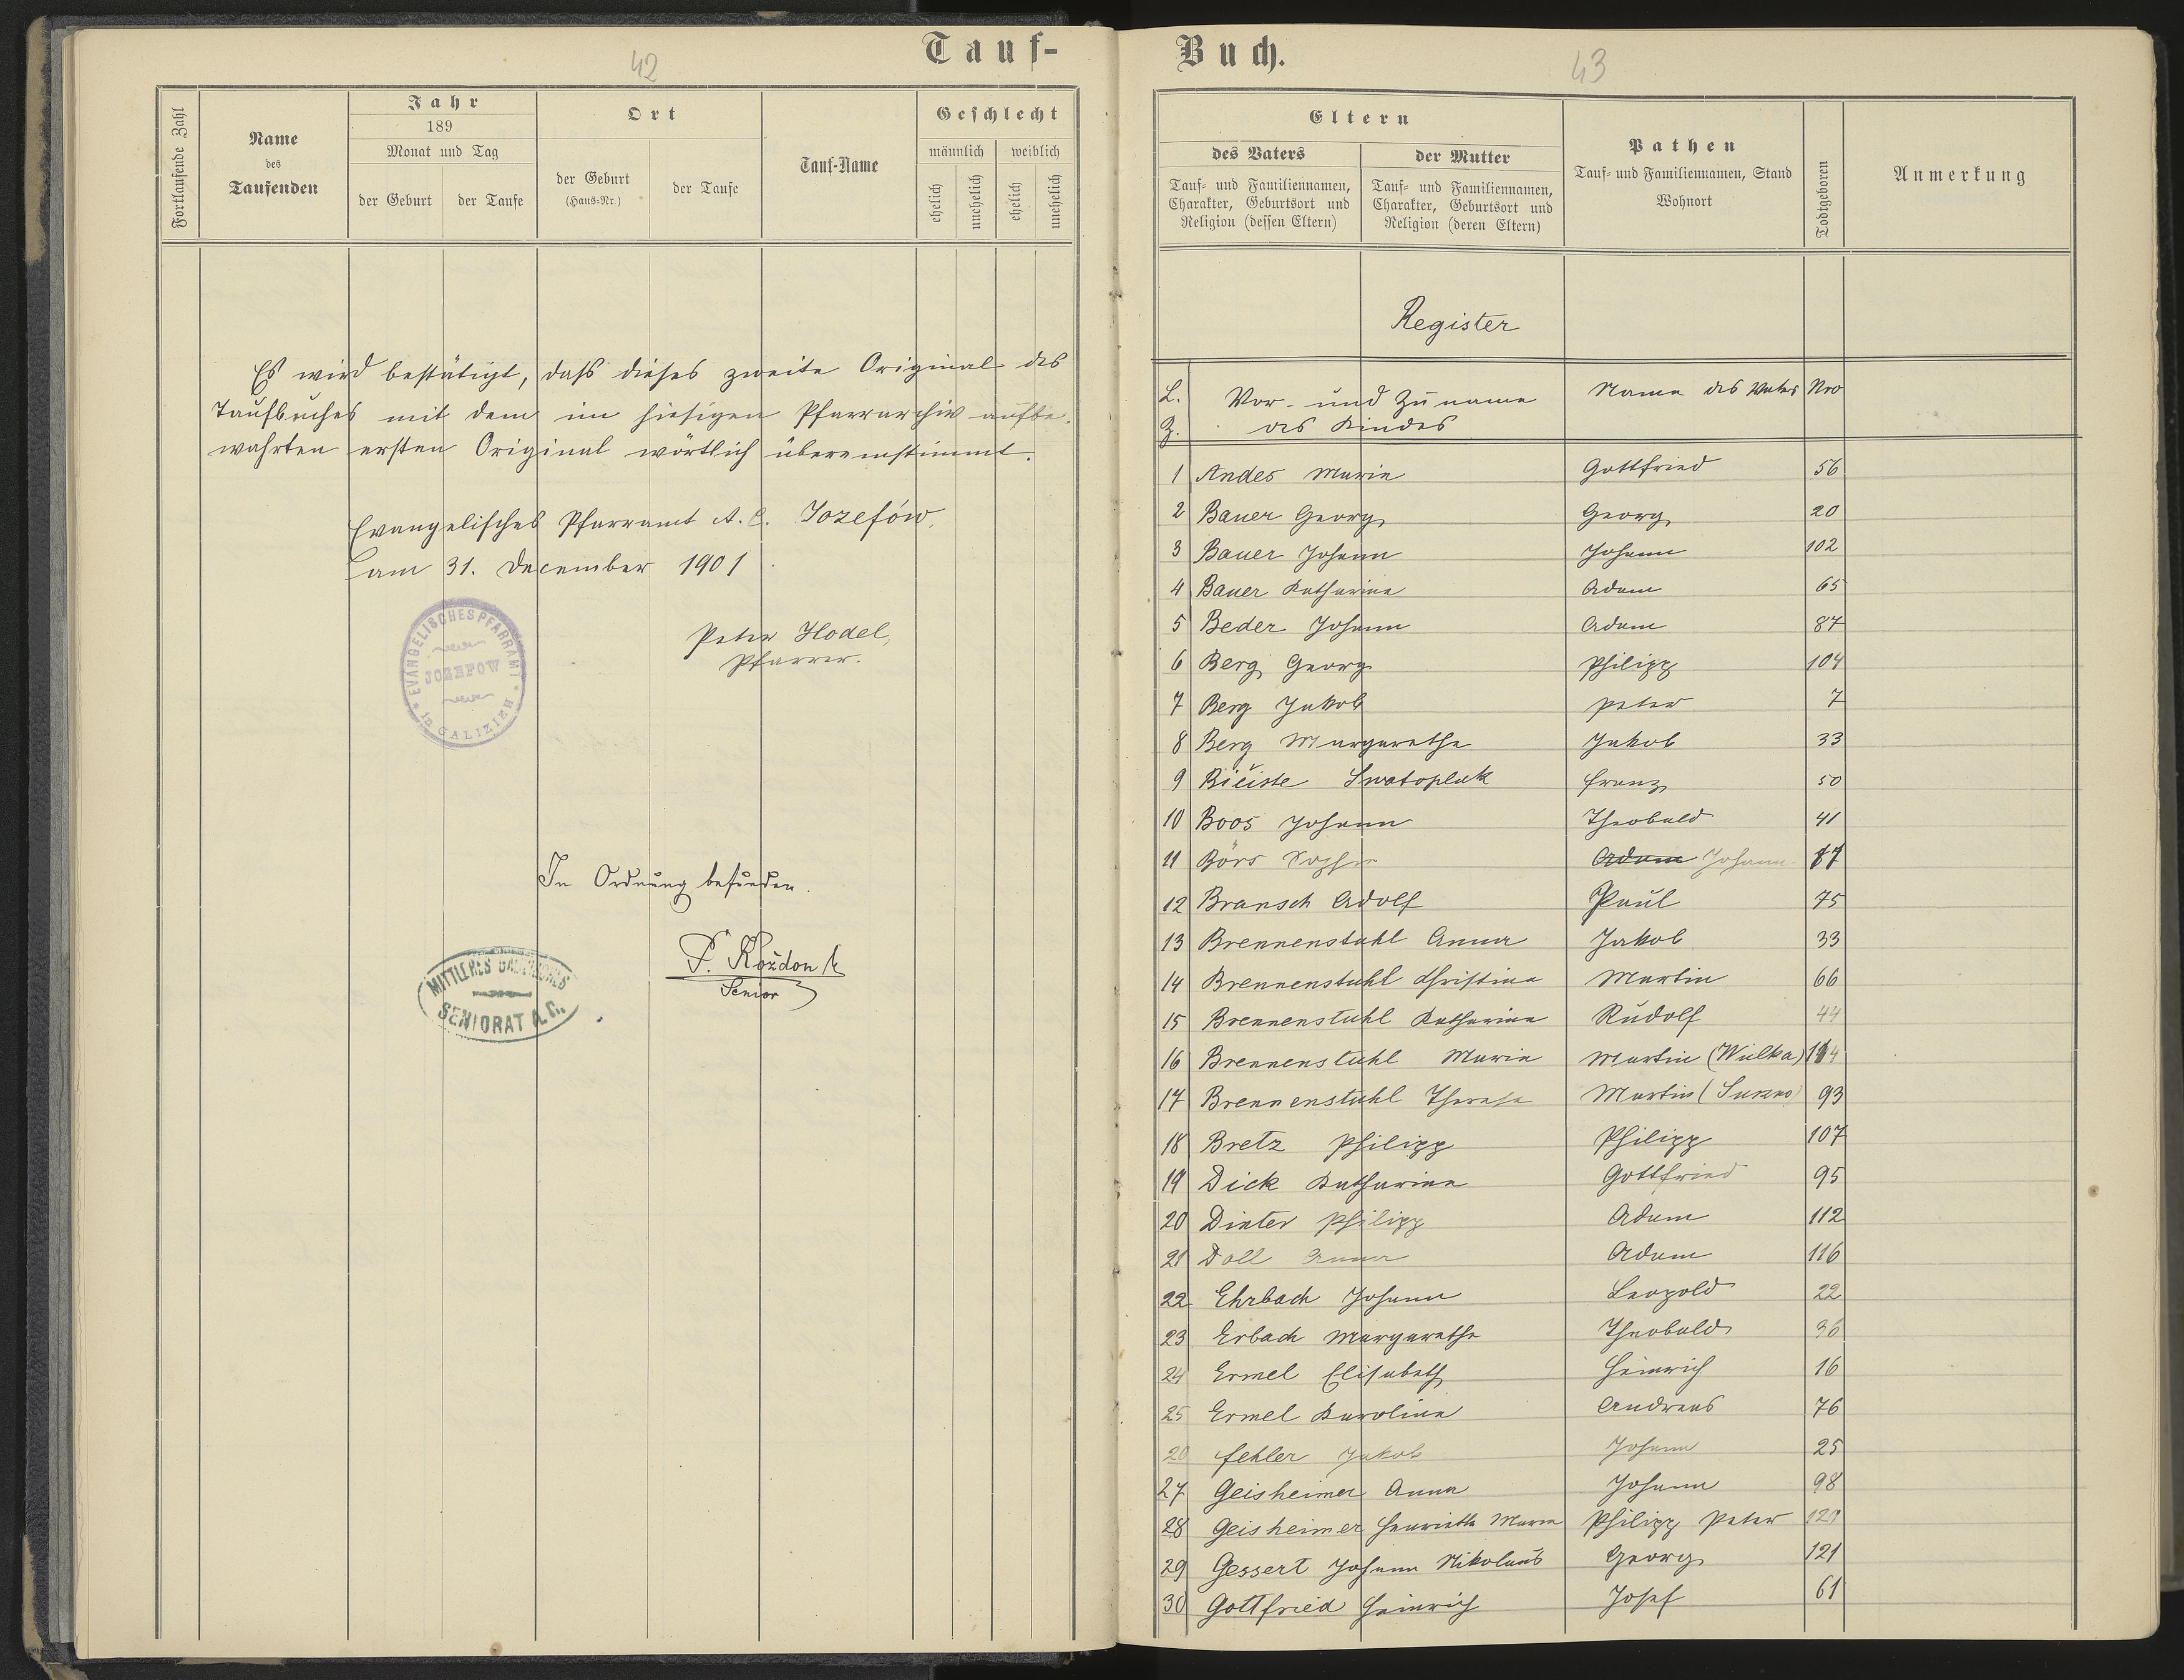 42
Tauf-
Fortlaufende Zahl
Name
des
Taufenden
Jahr
189
Monat und Tag
der Geburt
der Taufe
Ort
der Geburt
(Haus-Nr.)
der Taufe
Tauf-Name
Geschlecht
männlich
weiblich
ehelich
unehelich
ehelich
unehelich
Es wird bestätigt, daß dieses zweite Original des
Taufbuches mit dem im hiesigen Pfarrarchiv aufbe-
wahrten ersten Original wörtlich übereinstimmt.
Evangelisches Pfarramt A. C. Józefów,
am 31. December 1901
EVANGELISCHES PFARRAMT
JOZEFOW
in GALIZIEN
Peter Hodel,
Pfarrer.
In Ordnung befunden.
MITTLERES GALIZISCHES
SENIORAT A.C.
Senior
Buch.
43
Eltern
des Vaters
Tauf- und Familiennamen,
Charakter, Geburtsort und
Religion (dessen Eltern)
der Mutter
Tauf- und Familiennamen,
Charakter, Geburtsort und
Religion (deren Eltern)
Pathen
Tauf- und Familiennamen, Stand
Wohnort
Todtgeboren
Anmerkung
Register
L. Z. Vor- und Zuname des Kindes Name des Vaters Nro
1 Andes Maria Gottfried 56
2 Bauer Georg Georg 20
3 Bauer Johann Johann 102
4 Bauer Katharina Adam 65
5 Beder Johann Adam 87
6 Berg Georg Philipp 104
7 Berg Jakob Peter 7
8 Berg Margarethe Jakob 33
9 Swatopluk Franz 50
10 Boos Johann Theobald 41
11 Börs Sophie Adam Johann 77
12 Bransch Adolf Paul 75
13 Brennenstuhl Anna Jakob 33
14 Brennenstuhl Christina Martin 66
15 Brennenstuhl Katharina Rudolf 44
16 Brennenstuhl Maria Martin (Wulka) 114
17 Brennenstuhl Therese Martin 93
18 Bretz Philipp Philipp 107
19 Dick Katharina Gottfried 95
20 Dinter Philipp Adam 112
21 Doll Anna Adam 116
22 Ehrbach Johann Leopold 22
23 Erbach Margarethe Theobald 36
24 Ermel Elisabeth Heinrich 16
25 Ermel Karolina Andreas 76
26 Fehler Jakob Johann 25
27 Geisheimer Anna Johann 98
28 Geisheimer Henriette Maria Philipp Peter
29 Gessert Johann Nikolaus Georg 121
30 Gottfried Heinrich Josef 61